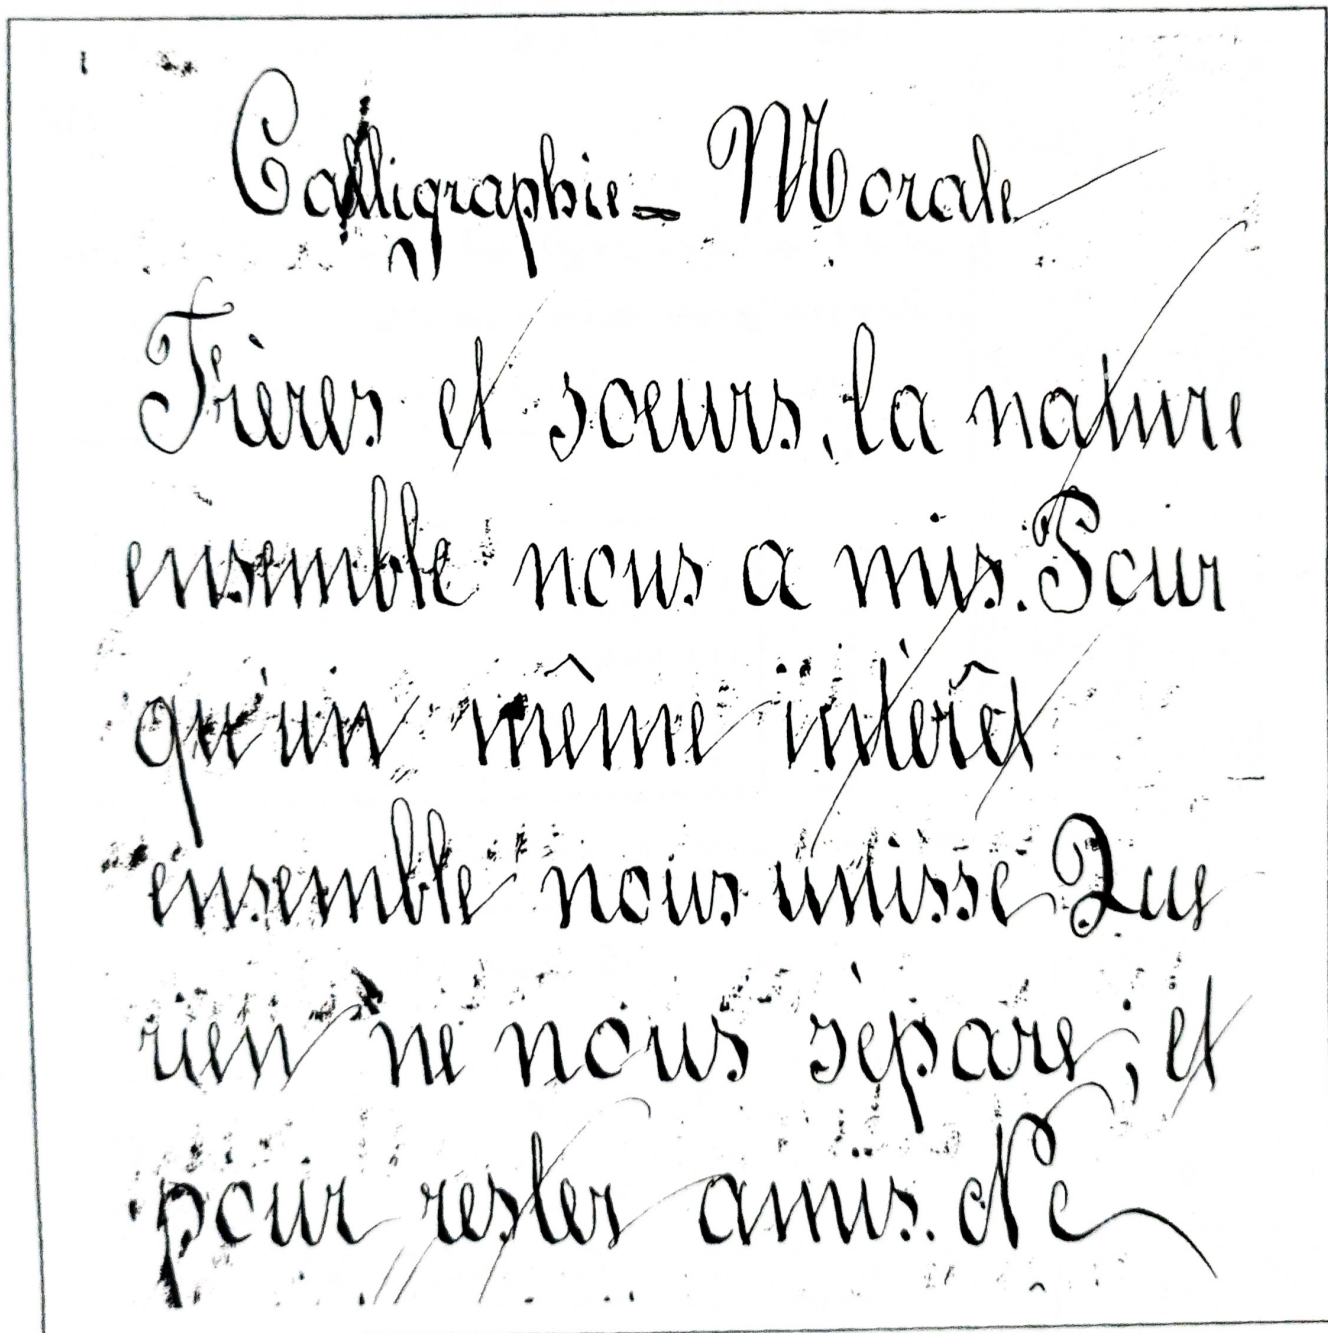 Calligraphie - Morale
Frères et sœurs, la nature
ensemble nous a mis. Pour
qu'un même intérêt
ensemble nous unisse Que
rien ne nous sépare ; et
pour rester amis. Ne